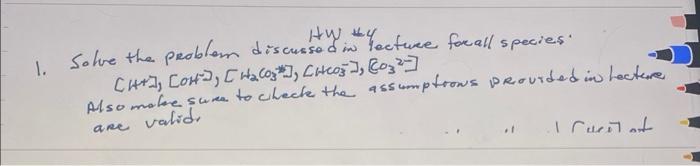 HW #4
1. Solve the problem discussed in lecture for all species.
[H+], [OH-], [H2CO3*], [HCO3-], [CO3 2-]
Also make sure to check the assumptions provided in lecture
are valid.